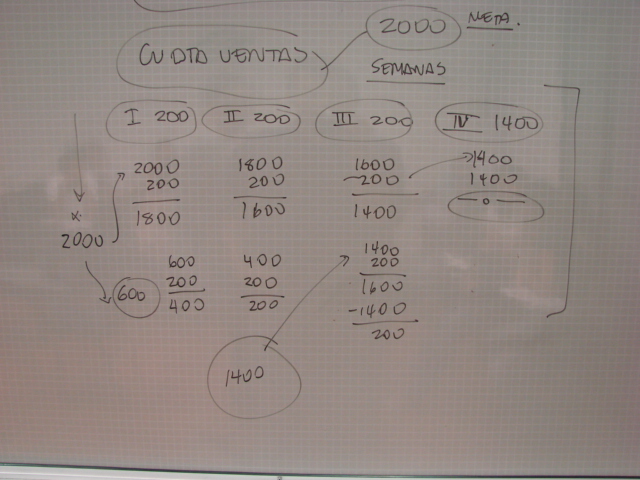 2000 META.
CUOTA VENTAS
SEMANAS
I 200 II 200 III 200 IV 1400
2000 1800 1600 1400
200 200 -200 1400
1800 1600 1400 -0-
x.
2000
600 400 1400
200 200 200
400 200 1600
600
-1400
200
1400